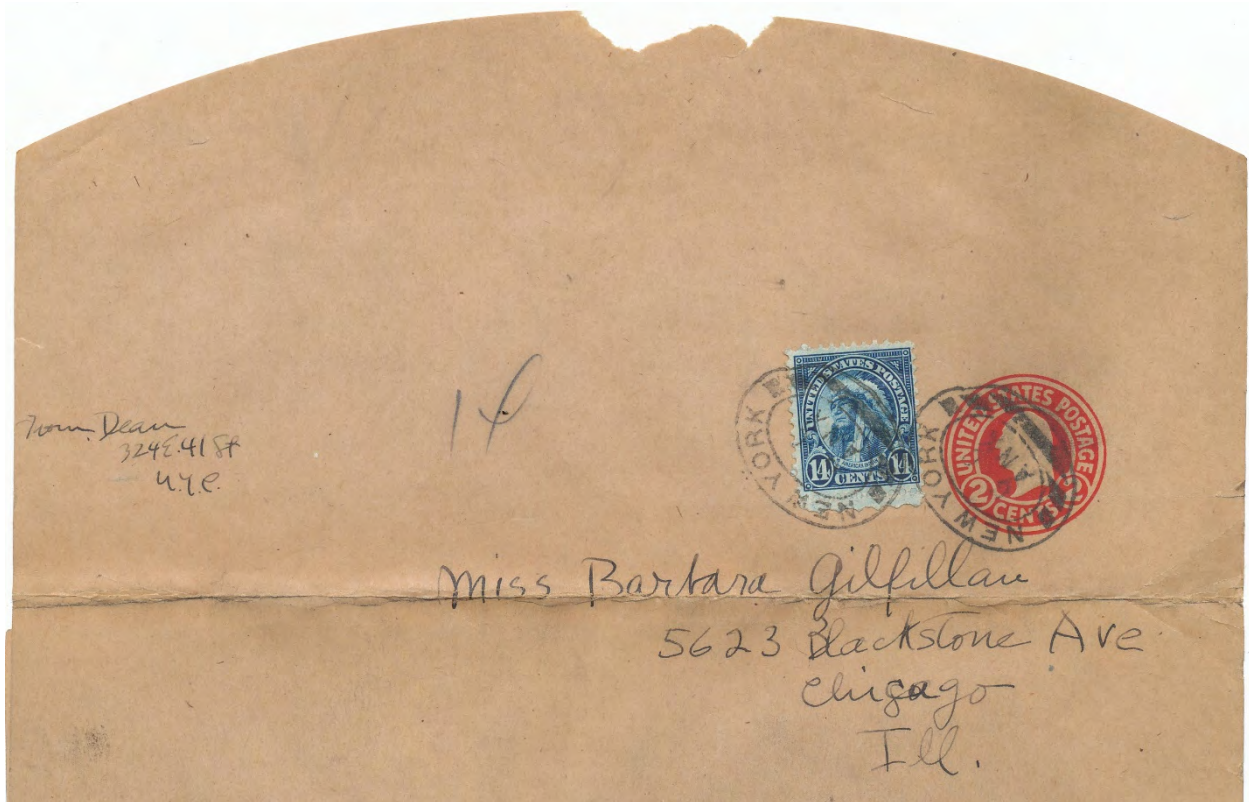 14
Dean
324 E. 41 St
N.Y.C.
UNITED STATES POSTAGE
14 CENTS 14
NEW YORK
UNITED STATES POSTAGE
2 CENTS 2
NEW YORK
Miss Barbara Gilfillan
5623 Blackstone Ave
Chicago
Ill.